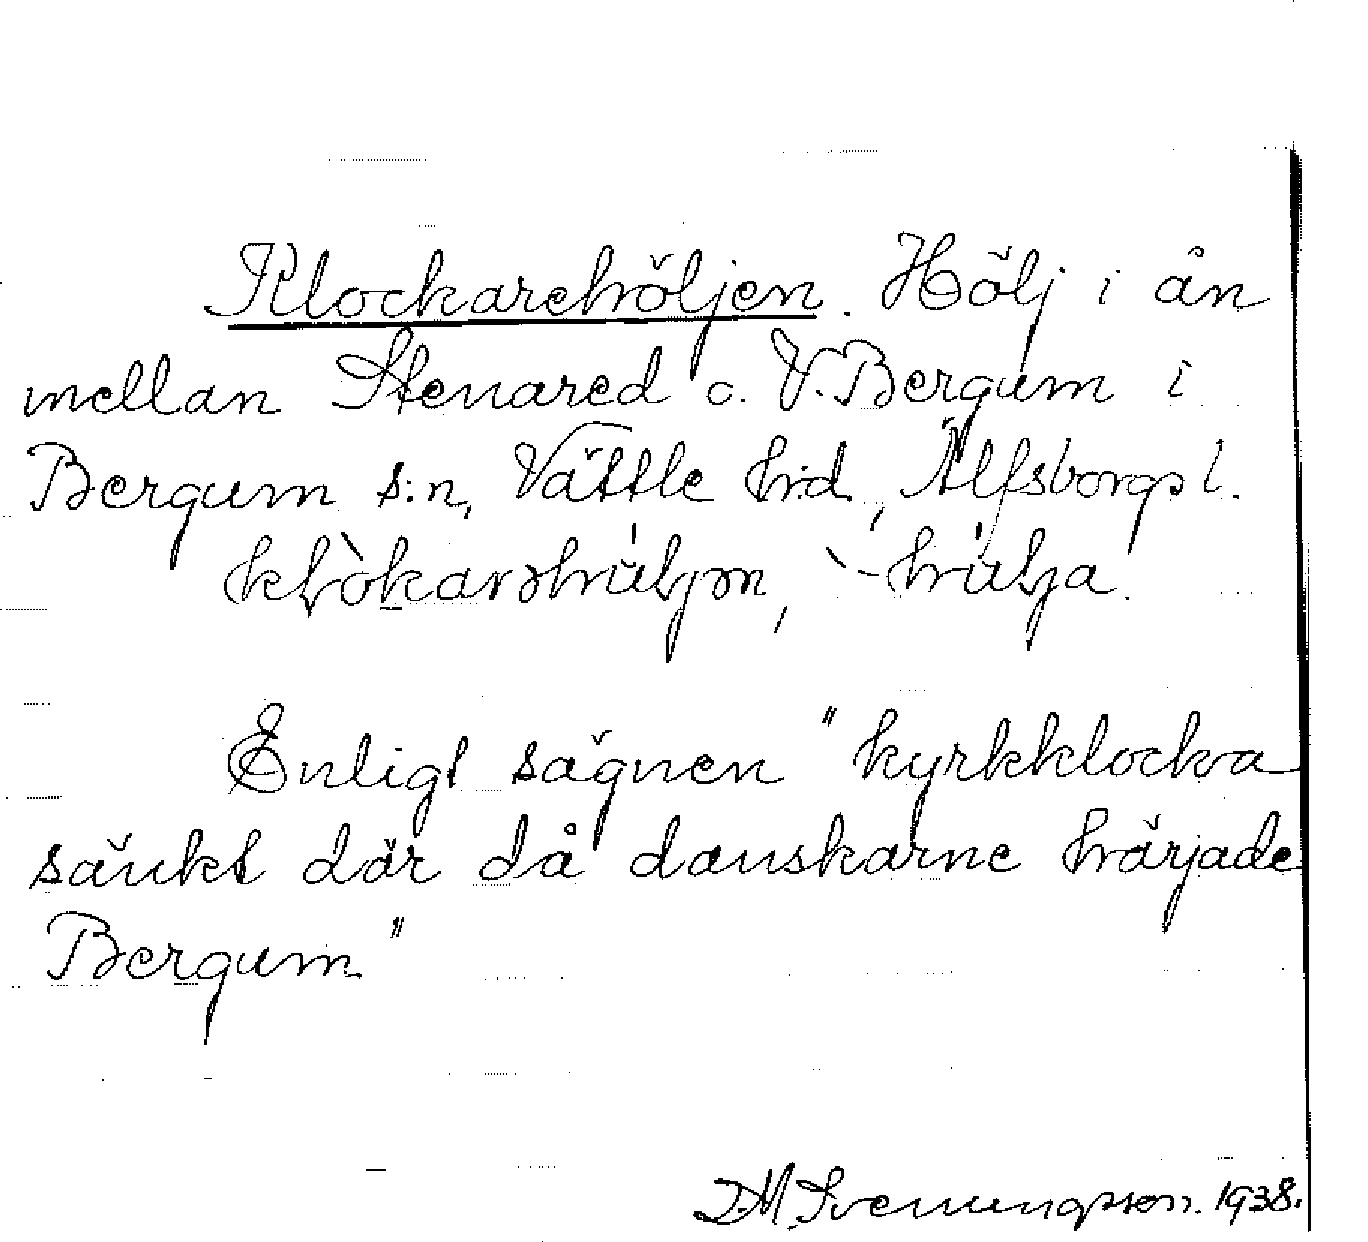 Klockarehöljen. Hölj i ån
mellan Stenared o. V. Bergum i
Bergum s:n, Vättle hrd, Älfsborgs l.
Enligt sägnen "kyrkklocka
sänkt där då danskarne härjade
Bergum"
D.M. Svenungsson. 1938.